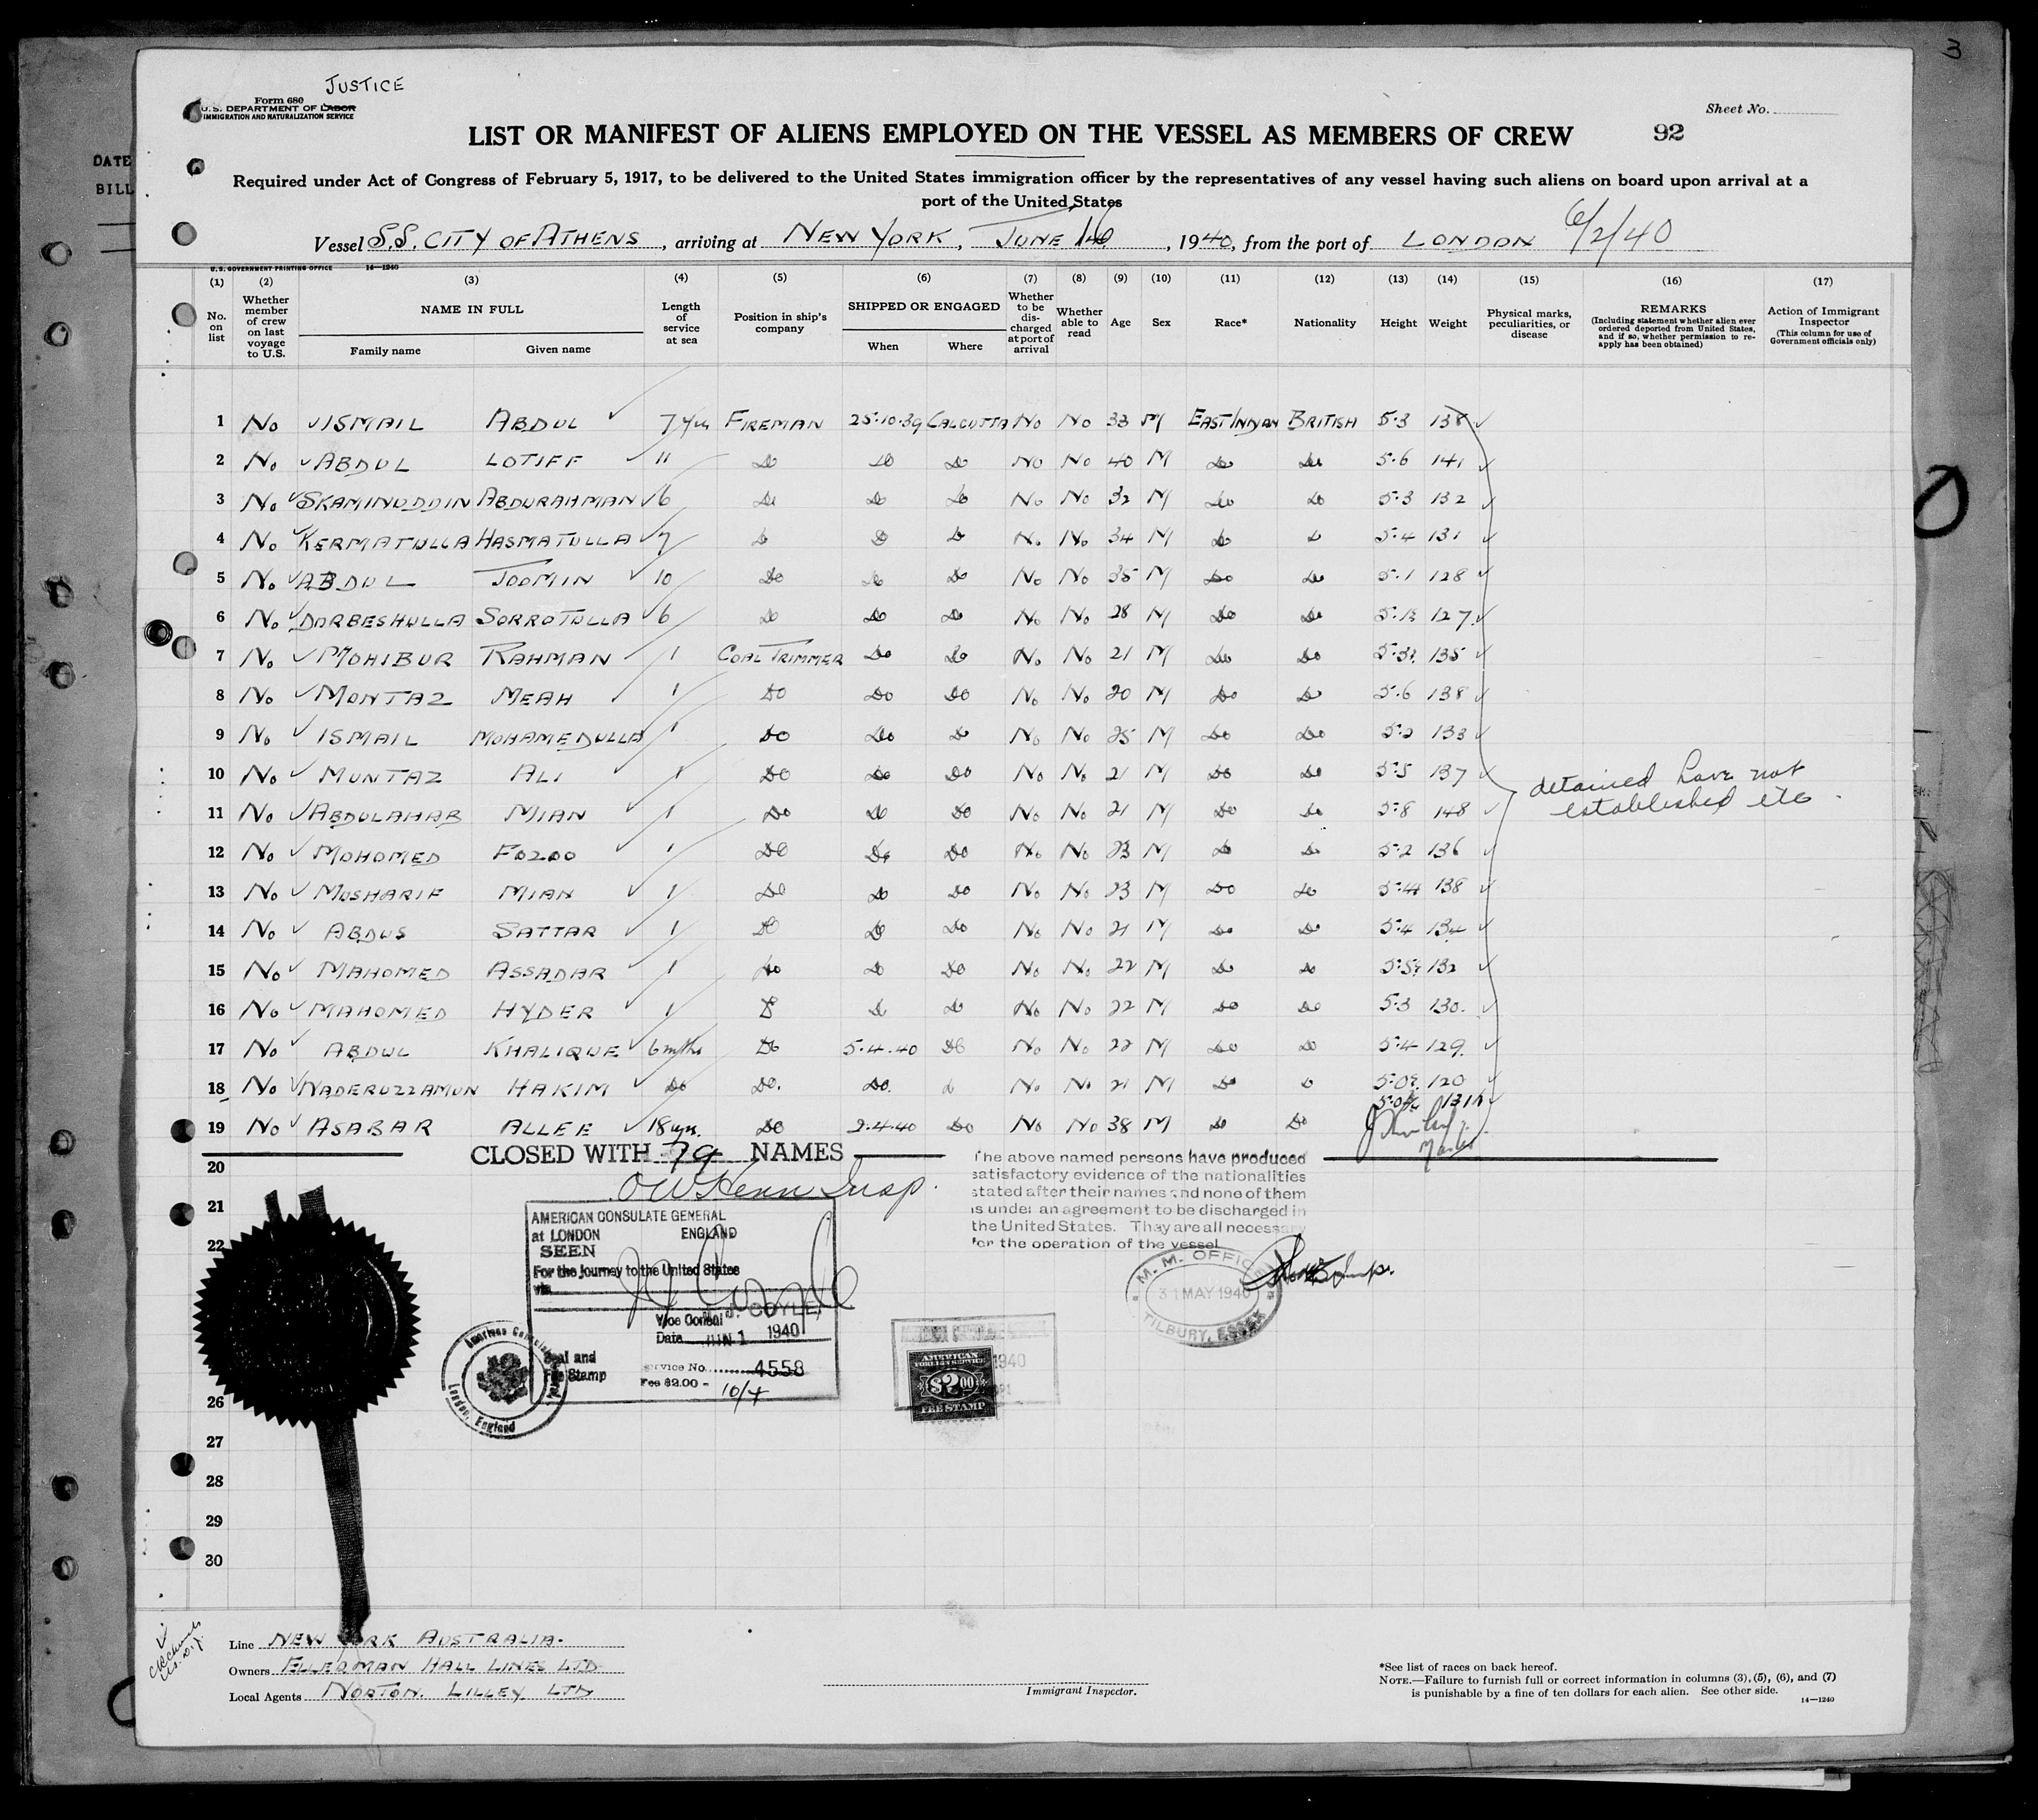 3
JUSTICE
Form 680
U.S. DEPARTMENT OF LABOR
IMMIGRATION AND NATURALIZATION SERVICE
Sheet No.
LIST OR MANIFEST OF ALIENS EMPLOYED ON THE VESSEL AS MEMBERS OF CREW
92
DATE
BILL
Required under Act of Congress of February 5, 1917, to be delivered to the United States immigration officer by the representatives of any vessel having such aliens on board upon arrival at a
port of the United States
Vessel S.S. CITY OF ATHENS, arriving at NEW YORK, JUNE 16, 1940, from the port of LONDON 6/2/40
U.S. GOVERNMENT PRINTING OFFICE 14—1240
(1) (2) (3) (4) (5) (6) (7) (8) (9) (10) (11) (12) (13) (14) (15) (16) (17)
No. on list
Whether member of crew on last voyage to U.S.
NAME IN FULL
Family name
Given name
Length of service at sea
Position in ship's company
SHIPPED OR ENGAGED
When
Where
Whether to be discharged at port of arrival
Whether able to read
Age
Sex
Race*
Nationality
Height
Weight
Physical marks, peculiarities, or disease
REMARKS
(Including statement whether alien ever ordered deported from United States, and if so, whether permission to reapply has been obtained)
Action of Immigrant Inspector
(This column for use of Government officials only)
1 No ISMAIL ABDUL 7 yrs FIREMAN 25.10.39 CALCUTTA No No 33 M EAST INDIAN BRITISH 5.3 138
2 No ABDUL LOTIFF 11 Do Do Do No No 40 M Do Do 5.6 141
3 No SKAMINUDDIN ABDURAHMAN 6 Do Do Do No No 32 M Do Do 5.3 132
4 No KERMATULLA HASMATULLA 7 Do Do Do No No 34 M Do Do 5.4 131
5 No ABDUL JOOMIN 10 Do Do Do No No 35 M Do Do 5.1 128
6 No DORBESHULLA SORROTULLA 6 Do Do Do No No 28 M Do Do 127
7 No MOHIBUR RAHMAN 1 COAL TRIMMER Do Do No No 21 M Do Do 135
8 No MONTAZ MEAH 1 Do Do Do No No 20 M Do Do 5.6 138
9 No ISMAIL MOHAMEDULLA 1 Do Do Do No No 25 M Do Do 5.2 133
10 No MUNTAZ ALI 1 Do Do Do No No 21 M Do Do 5.5 137
detained have not
established etc.
11 No ABDULAHAB MIAN 1 Do Do Do No No 21 M Do Do 5.8 148
12 No MOHOMED FOZOO 1 Do Do Do No No 23 M Do Do 5.2 136
13 No MOSHARIF MIAN 1 Do Do Do No No 23 M Do Do 138
14 No ABDUS SATTAR 1 Do Do Do No No 21 M Do Do 5.4 134
15 No MAHOMED ASSADAR 1 Do Do Do No No 22 M Do Do 132
16 No MAHOMED HYDER 1 Do Do Do No No 22 M Do Do 5.3 130.
17 No ABDUL KHALIQUE 6 mths Do 5.4.40 Do No No 22 M Do Do 5.4 129.
18 No NADERUZZAMUN HAKIM Do Do. Do. Do No No 21 M Do Do 120
19 No ASABAR ALLEE 18 yrs. Do 2.4.40 Do No No 38 M Do Do
Master
20
CLOSED WITH 79 NAMES
Insp.
The above named persons have produced
satisfactory evidence of the nationalities
stated after their names and none of them
is under an agreement to be discharged in
the United States. They are all necessary
for the operation of the vessel
21
22
AMERICAN CONSULATE GENERAL
at LONDON ENGLAND
SEEN
For the journey to the United States
via
COYLE,
Vice Consul
Date JUN 1 1940
Seal and
Fee Stamp
Service No. 4558
Fee $2.00 - 10/4
American Consulate General
London, England
M. M. OFFICE
31 MAY 1940
TILBURY, ESSEX
1940
AMERICAN
FOREIGN SERVICE
$2.00
FEE STAMP
26
27
28
29
30
Line NEW YORK AUSTRALIA.
Owners ELLERMAN HALL LINES LTD
Local Agents NORTON. LILLEY LTD
Immigrant Inspector.
*See list of races on back hereof.
NOTE.—Failure to furnish full or correct information in columns (3), (5), (6), and (7)
is punishable by a fine of ten dollars for each alien. See other side.
14—1240